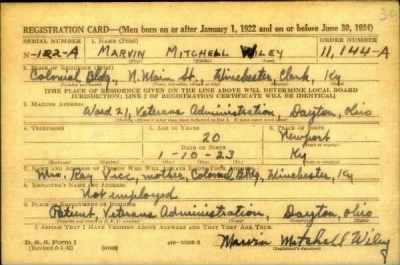 REGISTRATION CARD—(Men born on or after January 1, 1922 and on or before June 30, 1924)
SERIAL NUMBER 1. NAME (Print) ORDER NUMBER
N-122-A MARVIN MITCHELL WILEY 11,144-A
2. PLACE OF RESIDENCE (Print)
Colonial Bldg., N. Main St., Winchester, Clark, Ky
[THE PLACE OF RESIDENCE GIVEN ON THE LINE ABOVE WILL DETERMINE LOCAL BOARD
JURISDICTION; LINE 2 OF REGISTRATION CERTIFICATE WILL BE IDENTICAL]
3. MAILING ADDRESS
Ward 21, Veterans Administration, Dayton, Ohio
4. TELEPHONE 5. AGE IN YEARS 6. PLACE OF BIRTH
20 Newport
DATE OF BIRTH
1-10-23 Ky
7. NAME AND ADDRESS OF PERSON WHO WILL ALWAYS KNOW YOUR ADDRESS
Mrs. Ray mother, Colonial Bldg, Winchester, Ky
8. EMPLOYER'S NAME AND ADDRESS
Not employed
9. PLACE OF EMPLOYMENT OR BUSINESS
Patient, Veterans Administration, Dayton, Ohio
I AFFIRM THAT I HAVE VERIFIED ABOVE ANSWERS AND THAT THEY ARE TRUE.
D. S. S. Form 1
(Revised 6-1-42)
Marvin Mitchell Wiley
(Registrant's signature)